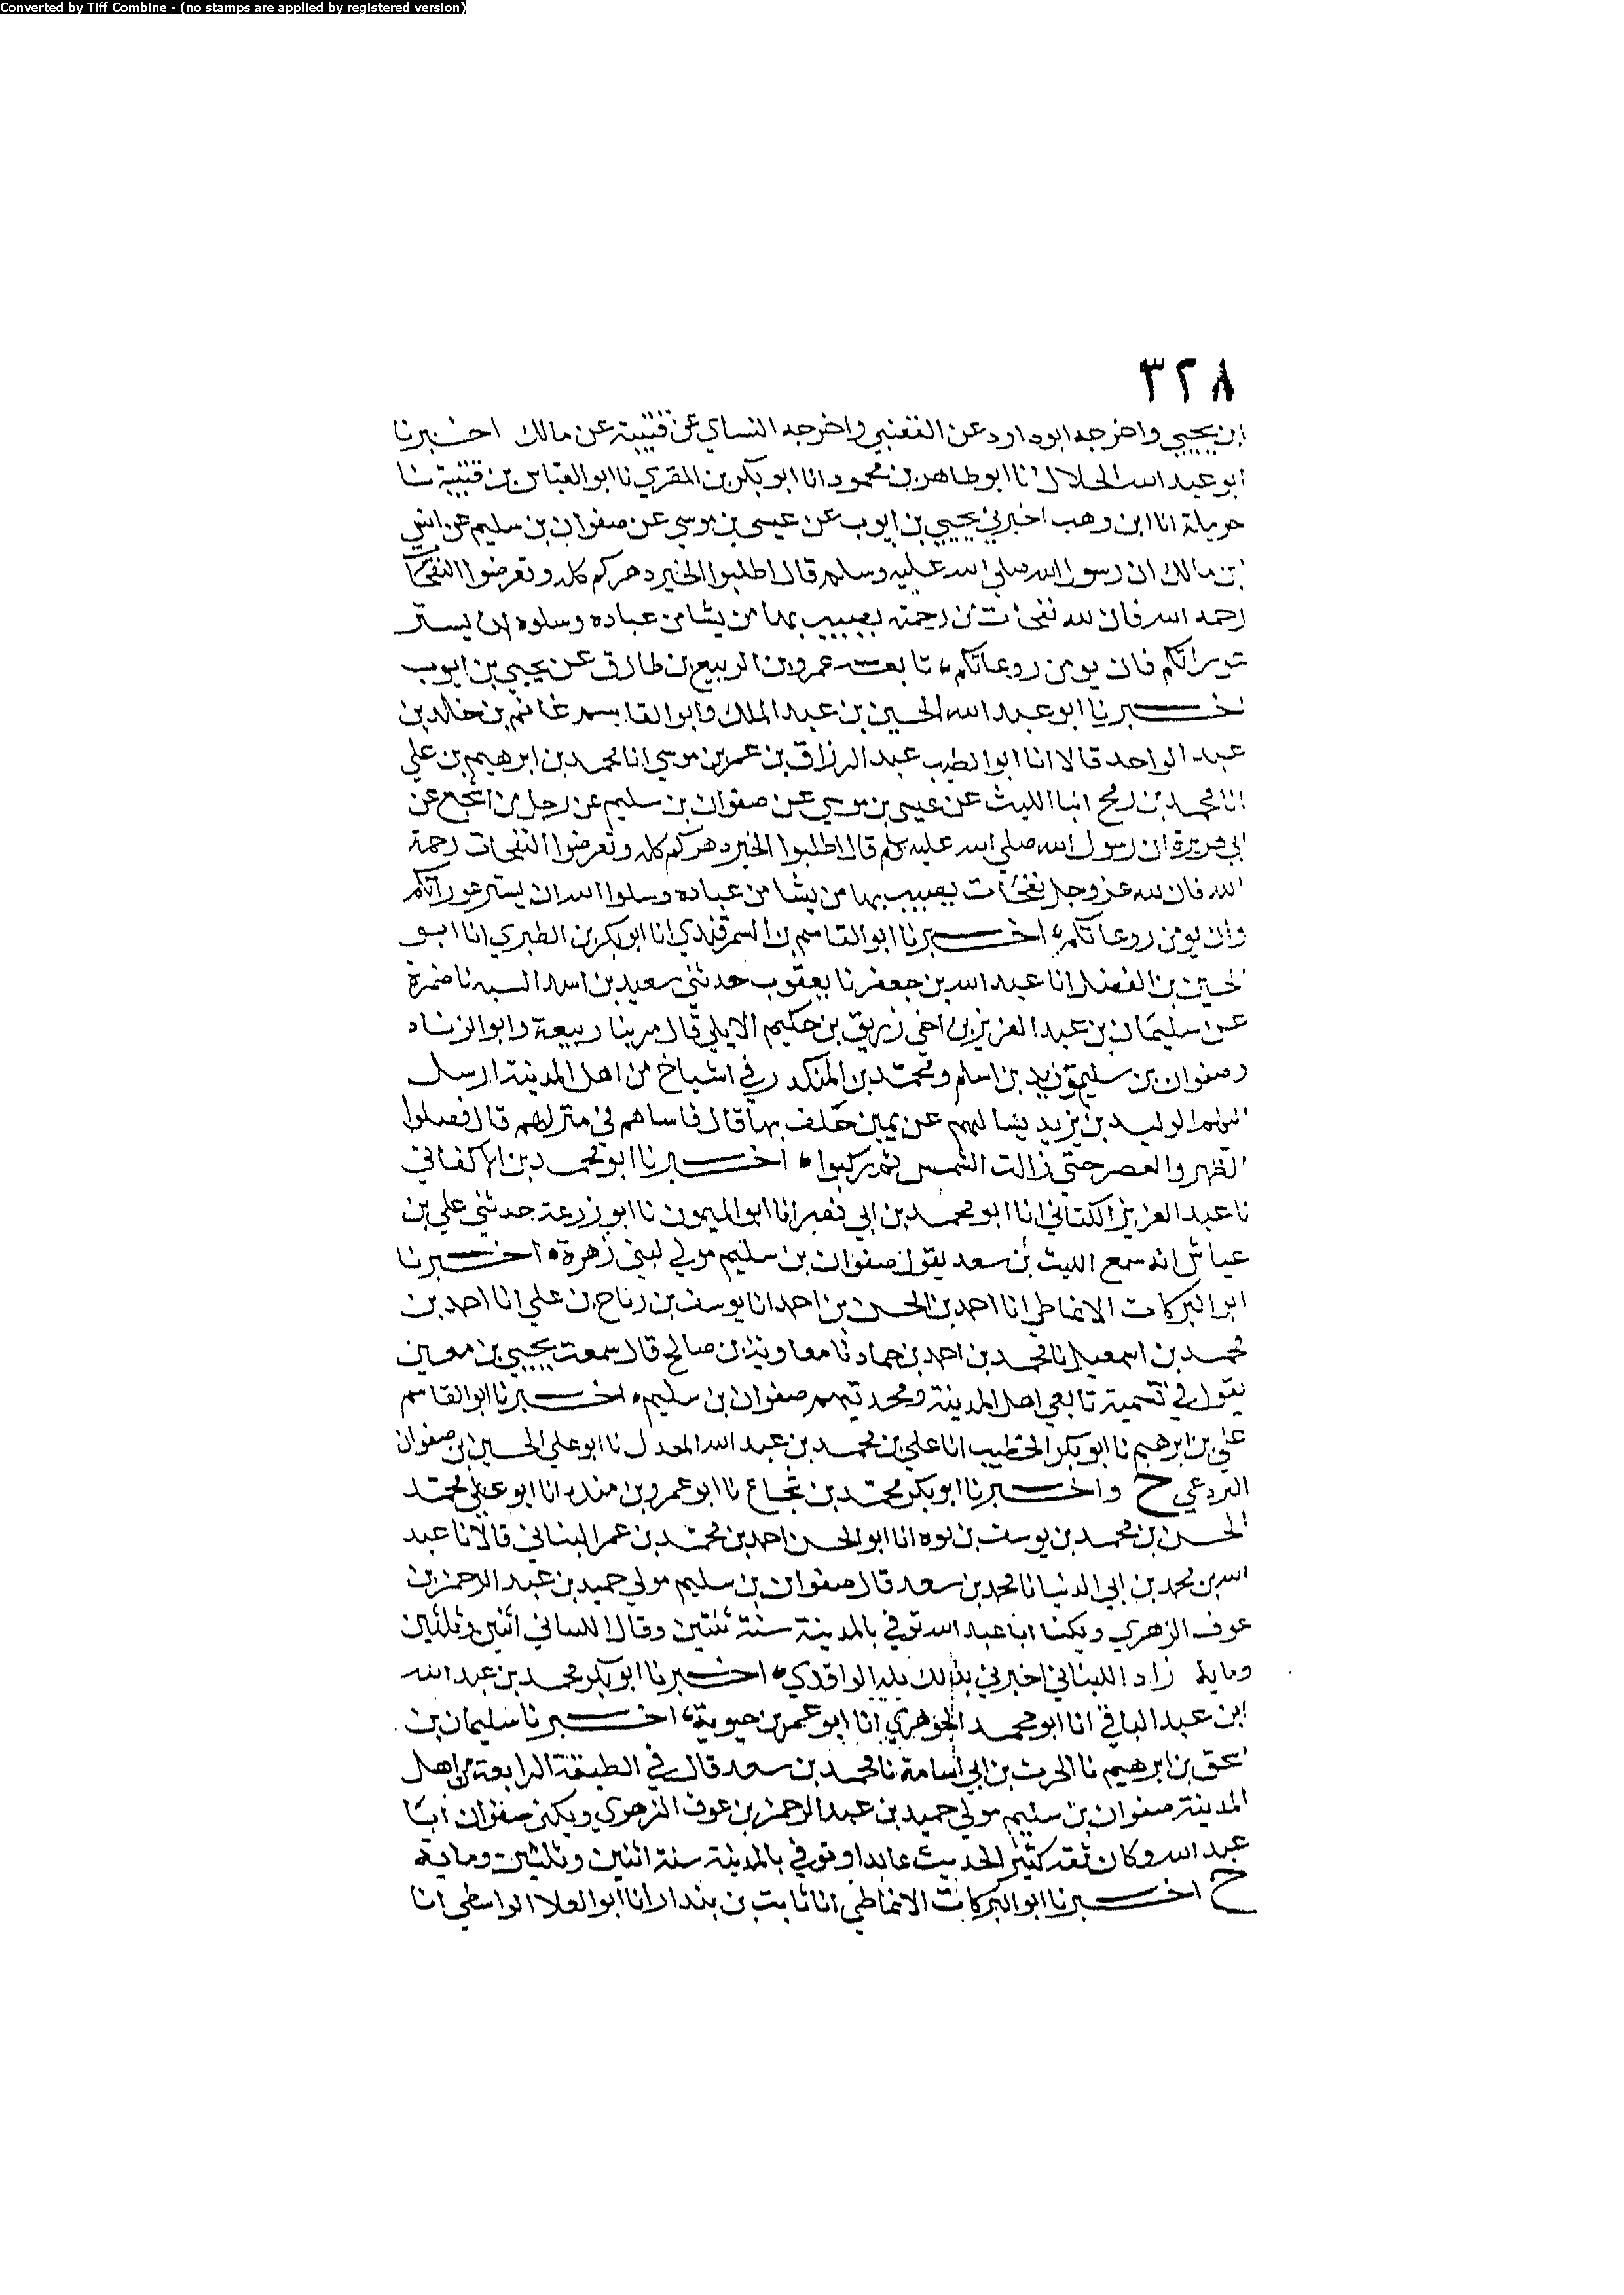 Converted by Tiff Combine - (no stamps are applied by registered version)
٣٢٨
ابن يحيى واخرجه ابوداود عن القعنبي واخرجه النساي عن قتيبة عن مالك اخبرنا
ابو عبد الله الخلال انا ابو طاهر بن محمود انا ابو بكر بن المقري نا ابو العباس بن قتيبة نا
حرملة انا ابن وهب اخبرني يحيى بن ايوب عن عيسى بن موسى عن صفوان بن سليم عن انس
بن مالك ان رسول الله صلى الله عليه وسلم قال اطلبوا الخير دهركم كله وتعرضوا النفحات
رحمه الله فان لله نفحات من رحمته يصيب بها من يشا من عباده وسلوه ان يستر
عوراتكم فان يومن روعاتكم، تابعه عمرو بن الربيع بن طارق عن يحيى بن ايوب
اخبرنا ابو عبد الله الحسين بن عبد الملك وابو القاسم غانم بن خالد بن
عبد الواحد قالا انا ابو الطيب عبد الرزاق بن عمر بن موسى انا محمد بن ابرهيم بن علي
انا محمد بن رمح انبا الليث عن عيسى بن موسى عن صفوان بن سليم عن رجل من اشجع عن
ابي هريرة ان رسول الله صلى الله عليه وسلم قال اطلبوا الخير دهركم كله وتعرضوا النفحات رحمة
الله فان لله عز وجل نفحات يصيب بها من يشا من عباده وسلوا الله ان يستر عوراتكم
وان يومن روعاتكم، اخبرنا ابو القاسم بن السمرقندي انا ابو بكر بن الطبري انا ابو
الحسين بن الفضل انا عبد الله بن جعفر نا يعقوب حدثني سعيد بن اسد نا ضمرة
عن سليمان بن عبد العزيز بن اخي زريق بن حكيم الايلي قال مر بنا ربيعة وابو الزناد
وصفوان بن سليم وزيد بن اسلم ومحمد بن المنكدر في اشياخ من اهل المدينة ارسل
اليهم الوليد بن يزيد يسالهم عن يمين حلف بها قال فاساهم في منزلهم قال فصلوا
الظهر والعصر حتى زالت الشمس ثم ركبوا، اخبرنا ابو محمد بن الاكفاني
نا عبد العزيز الكتاني انا ابو محمد بن ابي نصر انا ابو الميمون نا ابو زرعة حدثني علي بن
عياش انه سمع الليث بن سعد يقول صفوان بن سليم مولى لبني زهرة، اخبرنا
ابو البركات الانماطي انا احمد بن الحسن بن احمد انا يوسف بن رباح بن علي انا احمد بن
محمد بن اسمعيل نا محمد بن احمد بن حماد نا معاوية بن صالح قال سمعت يحيى بن معين
يقول في تسمية تابعي اهل المدينة ومحدثيهم صفوان بن سليم، اخبرنا ابو القاسم
علي بن ابرهيم نا ابو بكر الخطيب انا علي بن محمد بن عبد الله المعدل نا ابو علي الحسين بن صفوان
البردعي ح واخبرنا ابو بكر محمد بن شجاع نا ابو عمرو بن منده انا ابو علي محمد
الحسن بن محمد بن يوسف بن يوه انا ابو الحسن احمد بن محمد بن عمر البناني قالا نا عبد
الله بن محمد بن ابي الدنيا نا محمد بن سعد قال صفوان بن سليم مولى حميد بن عبد الرحمن بن
عوف الزهري ويكنا ابا عبد الله توفي بالمدينة سنة ثنتين وقال اللساني اثنين وثلثين
وماية زاد اللبناني اخبرني بذلك الواقدي، اخبرنا ابو بكر محمد بن عبد الله
ابن عبد الباقي انا ابو محمد الجوهري انا ابو عمر بن حيوية، اخبرنا سليمان بن
اسحق بن ابرهيم نا الحرث بن ابي اسامة نا محمد بن سعد قال في الطبقة الرابعة من اهل
المدينة صفوان بن سليم مولى حميد بن عبد الرحمن بن عوف الزهري ويكنى صفوان ابا
عبد الله وكان ثقه كثير الحديث عابدا وتوفي بالمدينة سنة اثنين وثلثين وماية
ح اخبرنا ابو البركات الانماطي انا ثابت بن بندار انا ابو العلا الواسطي انا